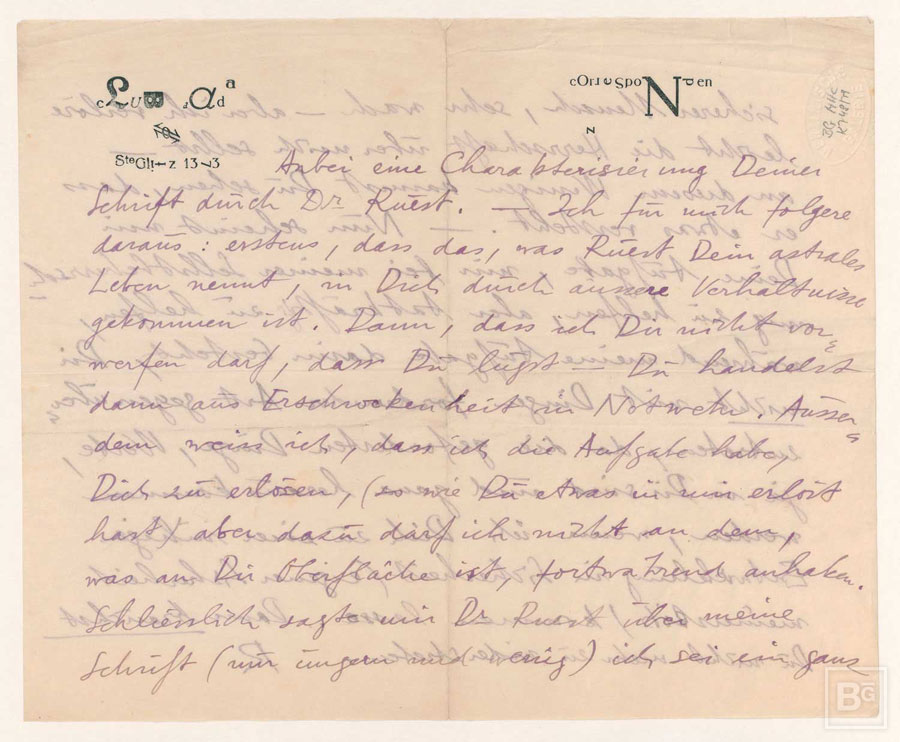 cLuB dAda
cOrresPoNden
z
SteGlitz
Anbei eine Charakterisierung Deiner
Schrift durch Dr Ruest. — Ich für mich folgere
daraus: erstens, dass das, was Ruest Dein astrales
Leben nennt, in Dich durch äussere Verhältnisse
gekommen ist. Dann, dass ich Dir nicht vor=
werfen darf, dass Du lügst — Du handelst
dann aus Erschrockenheit in Notwehr. Ausser=
dem weiss ich, dass ich die Aufgabe habe,
Dich zu erlösen, (so wie Du etwas in mir erlöst
hast) aber dazu darf ich nicht an dem,
was an Dir Oberfläche ist, fortwährend anhaken.
Schliesslich sagte mir Dr Ruest über meine
Schrift (nur ungern und wenig) ich sei ein ganz
BG